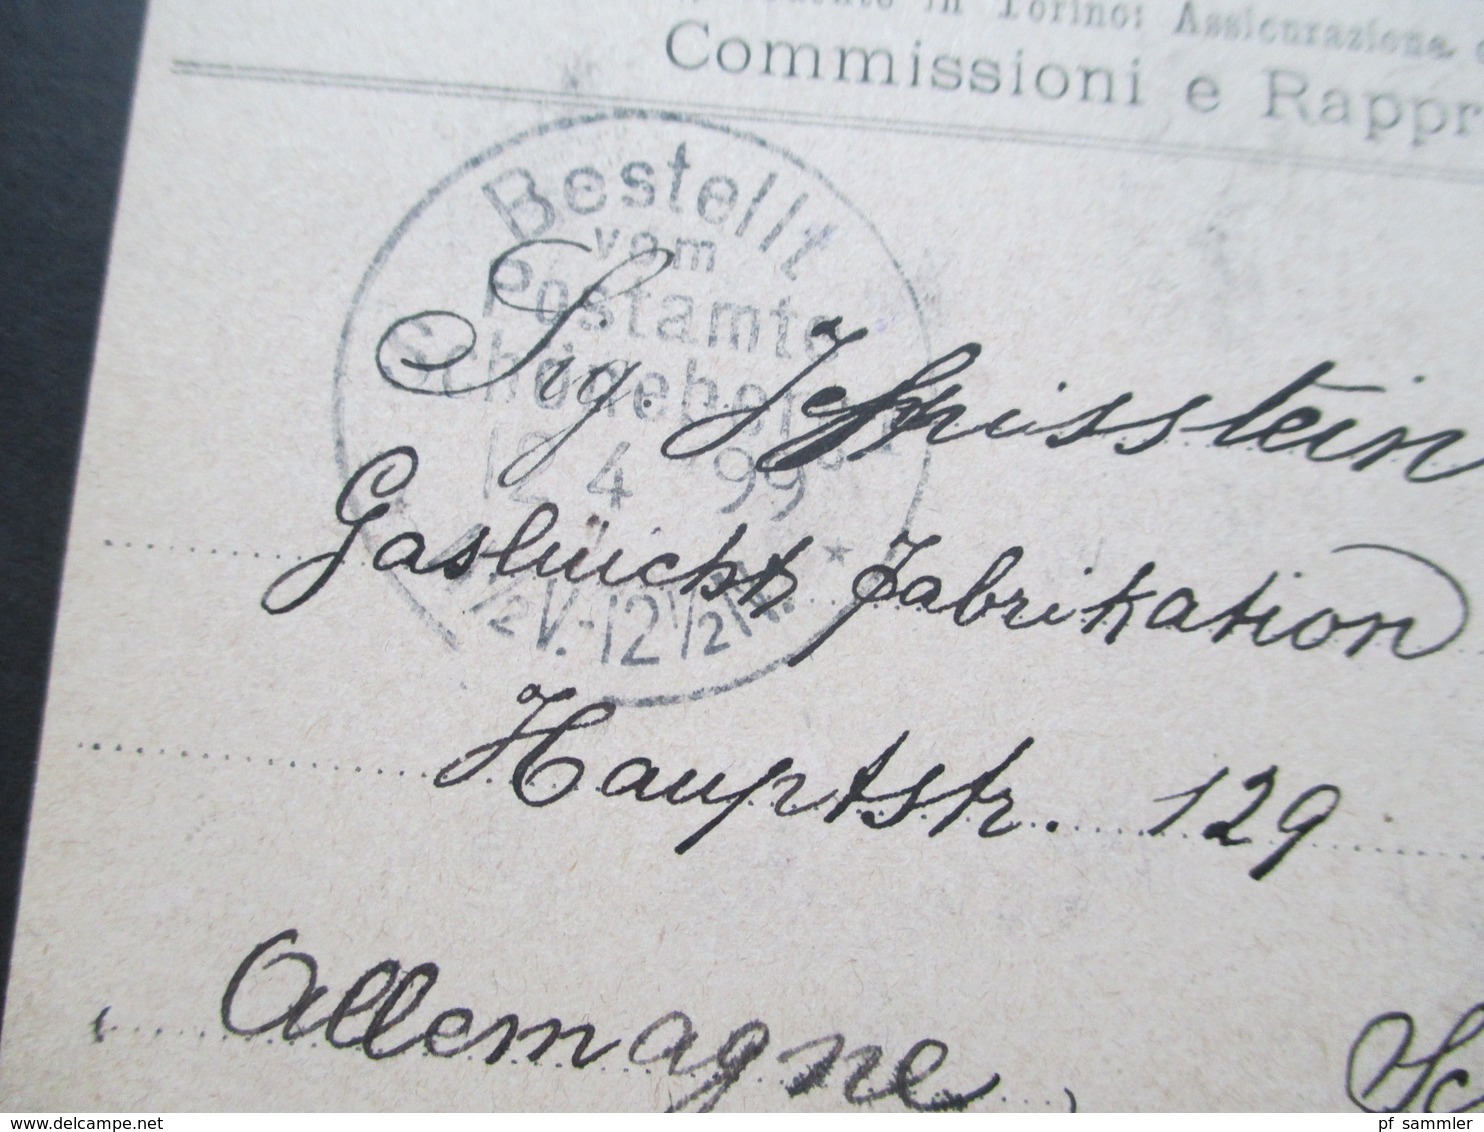 in Torino: Assicurazione
Commissioni e Rappr
Bestellt
vom
Postamte
Schöneberg
12 4 99
1/2 V.-12 1/2 N.
Sig. Jeppisstein
Gaslüicht Fabrikation
Hauptstr. 129
Allemagne, Sc
pf_sammler